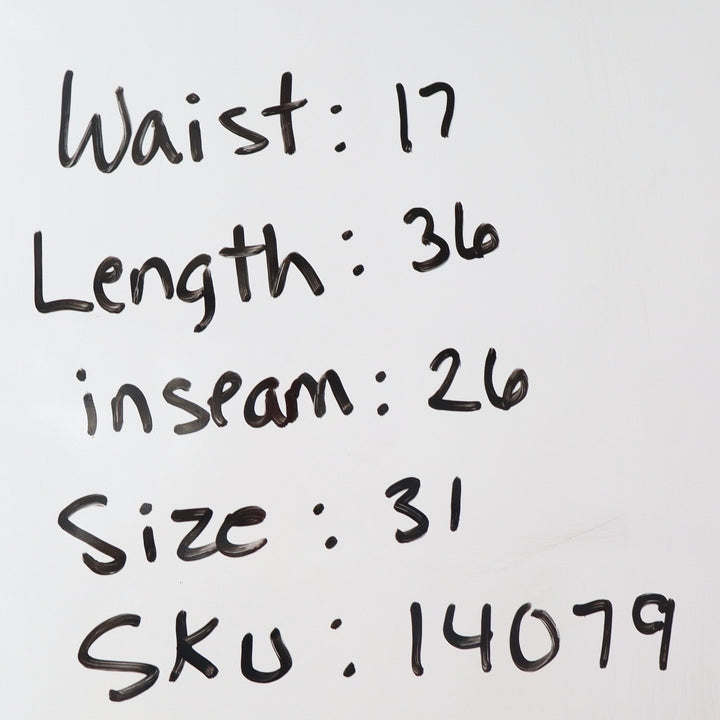 Waist: 17
Length: 36
inseam: 26
Size: 31
SKU: 14079